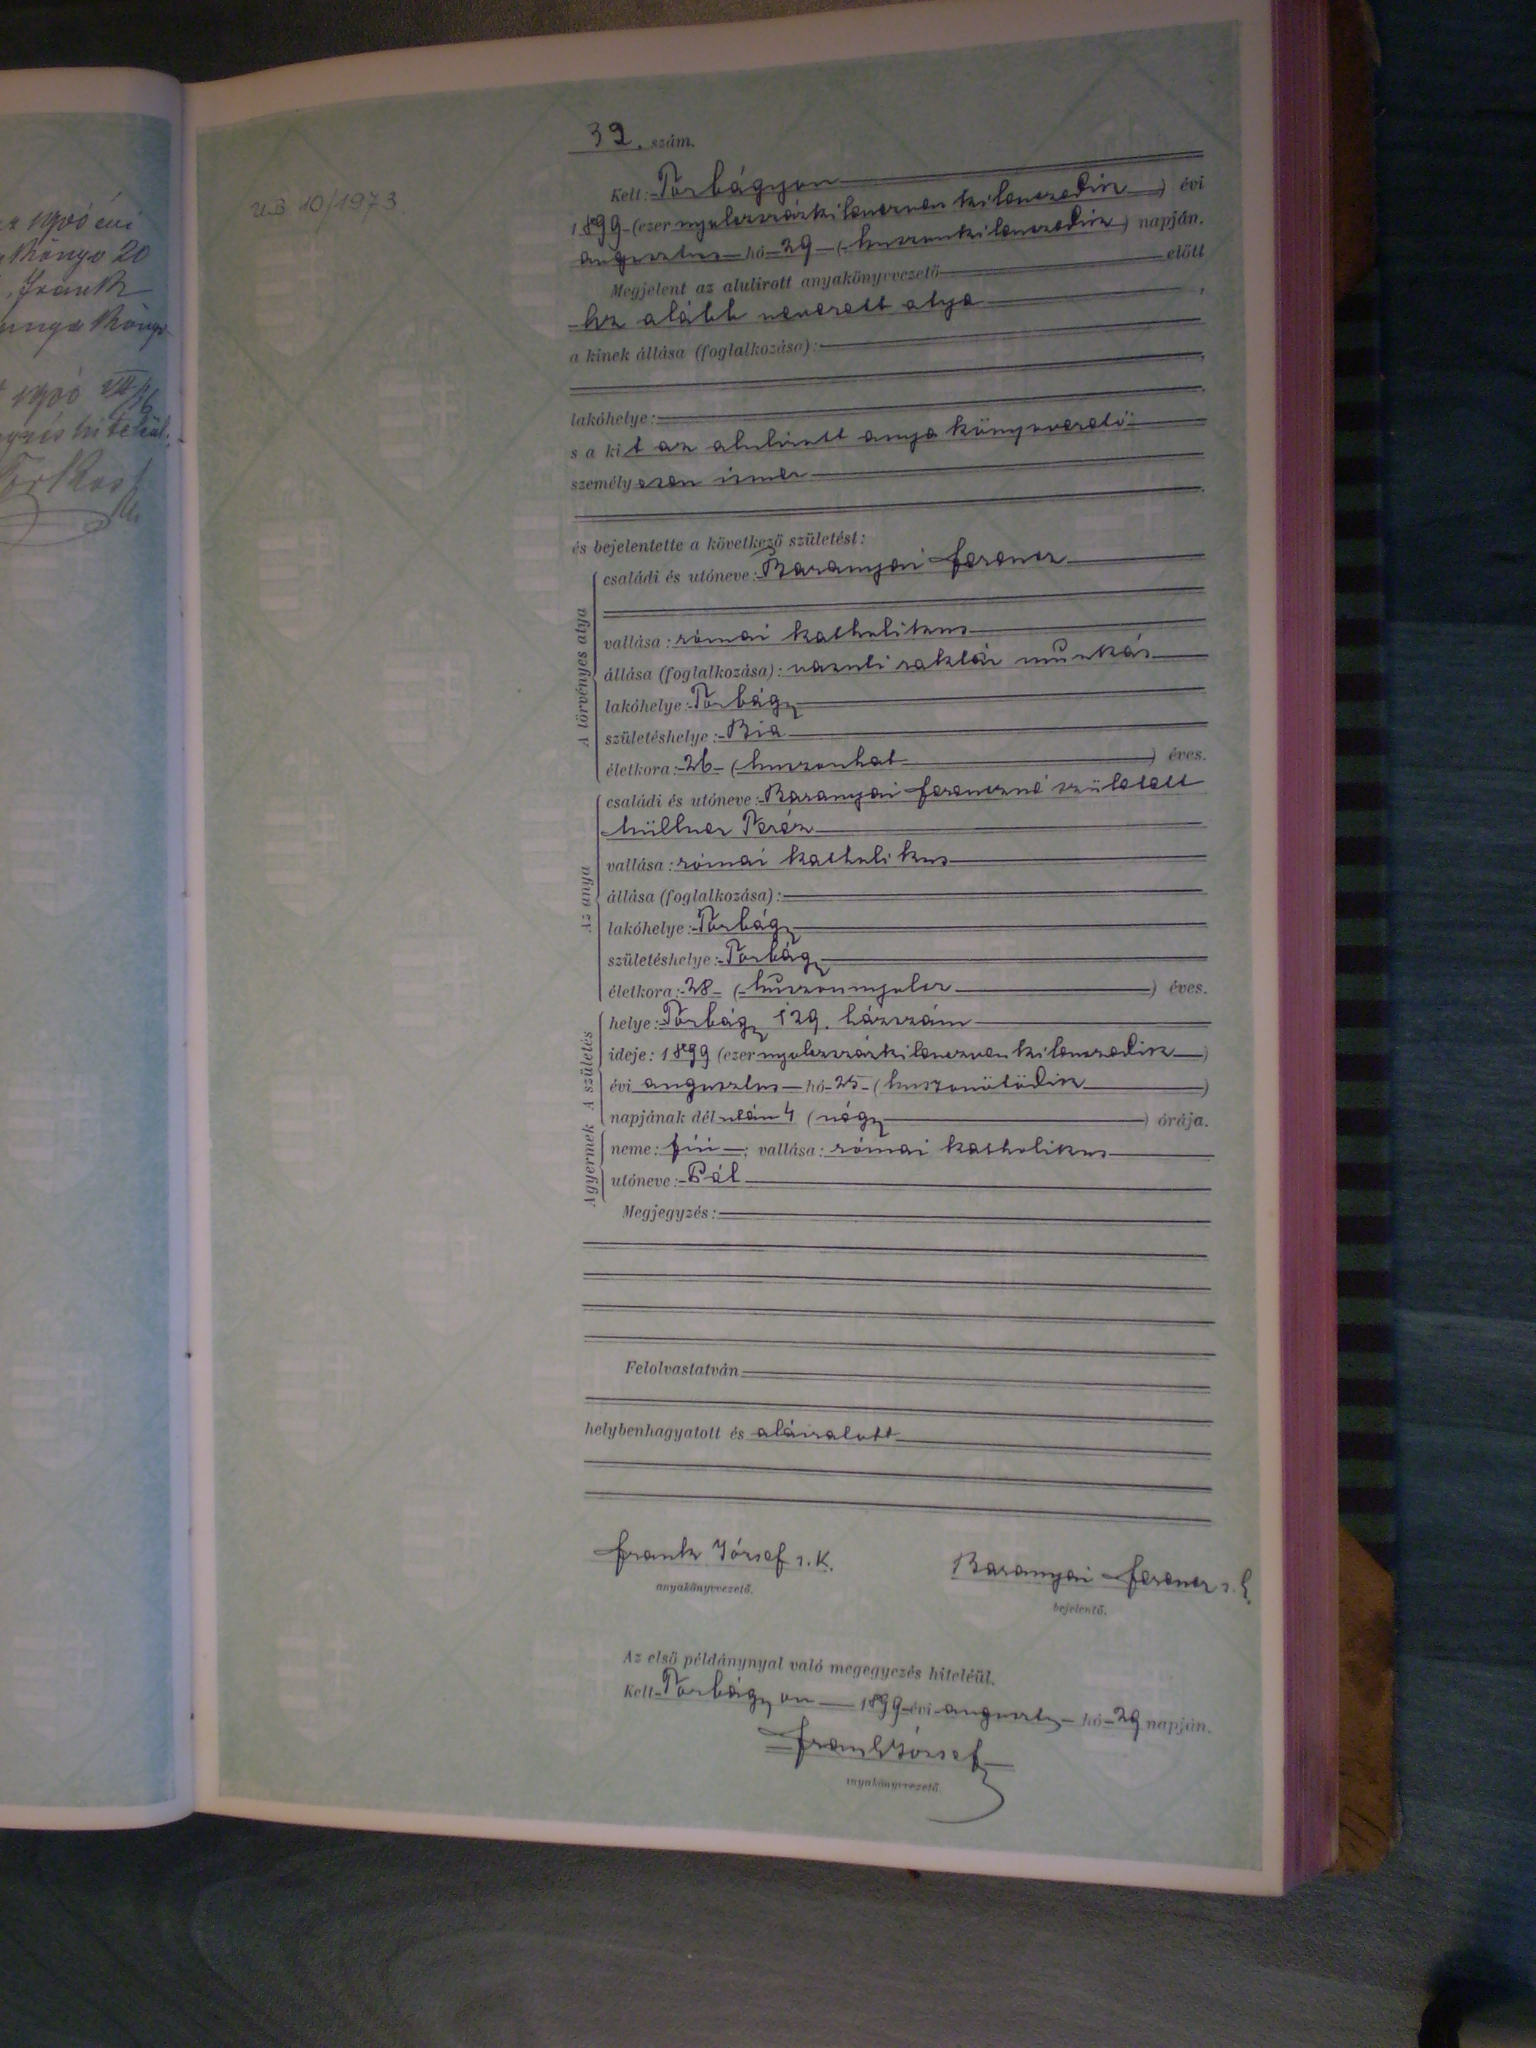 1900 évi
Könyv 20
Frank
1900 VII/16
U.B 10/1973.
39. szám.
Kelt: Torbágyon
1899 (ezer nyolczszázkilenczven kilenczedik) évi
augusztus hó 29 (huszonkilenczedik) napján.
Megjelent az alulirott anyakönyvvezető előtt
Az alább nevezett atya,
a kinek állása (foglalkozása):
lakóhelye:
s a kit az alulirott anyakönyvvezető
személyesen ismer
és bejelentette a következő születést:
A törvényes atya
családi és utóneve: Baranyai Ferencz
vallása: római katholikus
állása (foglalkozása): vasuti raktár munkás
lakóhelye: Torbágy
születéshelye: Bia
életkora: 26 (huszonhat) éves.
Az anya
családi és utóneve: Baranyai Ferenczné született
Hüllner Teréz
vallása: római katholikus
állása (foglalkozása):
lakóhelye: Torbágy
születéshelye: Torbágy
életkora: 28 (huszonnyolcz) éves.
A születés
helye: Torbágy 129. házszám
ideje: 1899 (ezer nyolczszázkilenczven kilenczedik)
évi augusztus hó 25 (huszonötödik)
napjának dél után 4 (négy) órája.
A gyermek
neme: fiú; vallása: római katholikus
utóneve: Pál
Megjegyzés:
Felolvastatván
helybenhagyatott és aláiratott
Frank József s. k. Baranyai Ferencz s. k.
anyakönyvvezető. bejelentő.
Az első példánynyal való megegyezés hiteléül.
Kelt Torbágyon 1899 évi auguszt hó 29 napján.
Frank József
anyakönyvvezető.